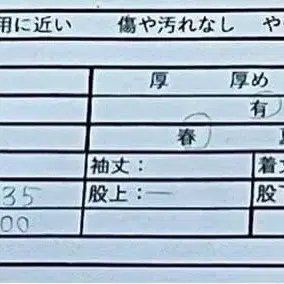 用に近い 傷や汚れなし や
厚 厚め
有
春
袖丈： 着
35 股上：— 股
00